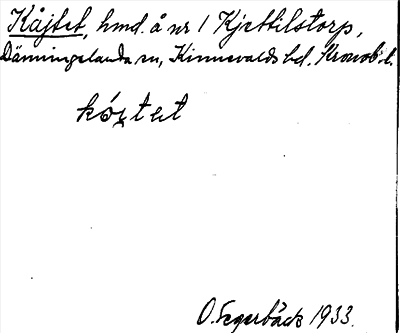 Kåjtet, hmd. å nr 1 Kjettilstorp,
Dänningelanda sn, Kinnevalds hd. Kronob. l.
kóztet
O. Segerbäck 1933.